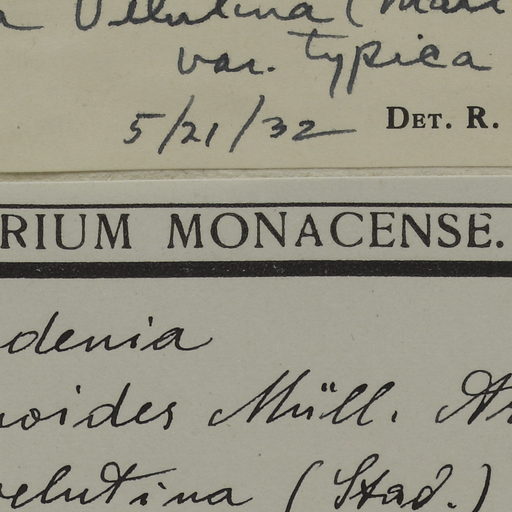 a Velutina (Mart
var. typica
5/21/32 DET. R.
RIUM MONACENSE.
denia
noides Müll. Ar
velutina (Stad.)